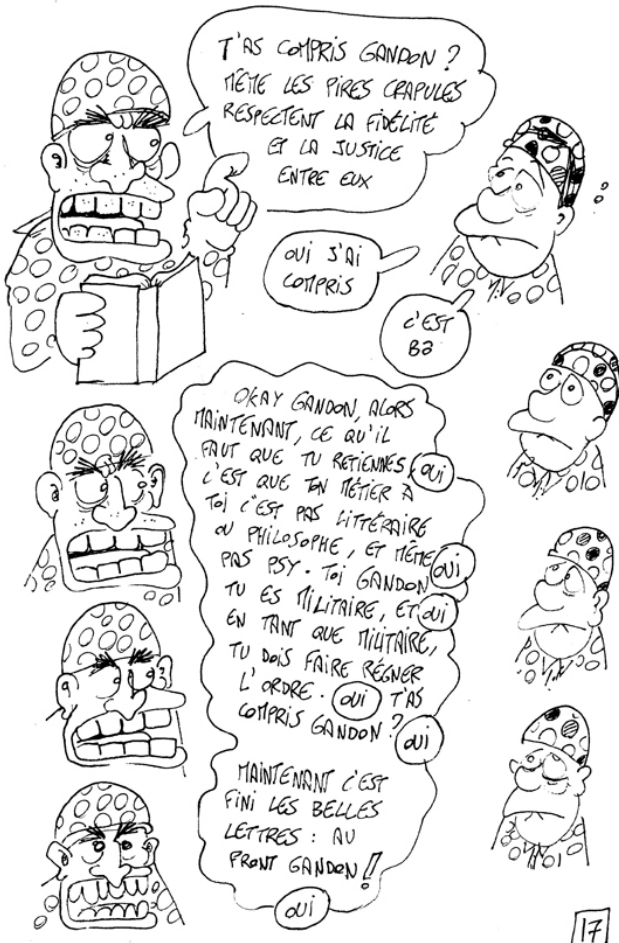 T'AS COMPRIS GANDON ?
MÊME LES PIRES CRAPULES
RESPECTENT LA FIDÉLITÉ
ET LA JUSTICE
ENTRE EUX
OUI J'AI
COMPRIS
C'EST
OKAY GANDON, ALORS
MAINTENANT, CE QU'IL
FAUT QUE TU RETIENNES, OUI
C'EST QUE TON MÉTIER À
TOI C'EST PAS LITTÉRAIRE
OU PHILOSOPHE, ET MÊME
PAS PSY. TOI GANDON OUI
TU ES MILITAIRE, ET OUI
EN TANT QUE MILITAIRE,
TU DOIS FAIRE RÉGNER
L'ORDRE. OUI T'AS
COMPRIS GANDON ?
OUI
MAINTENANT C'EST
FINI LES BELLES
LETTRES : AU
FRONT GANDON !!
OUI
17